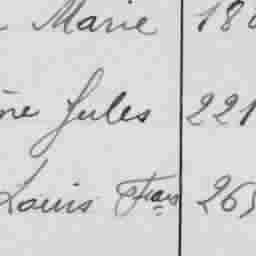 Marie 180
ne Jules 221
Louis Fcois 265